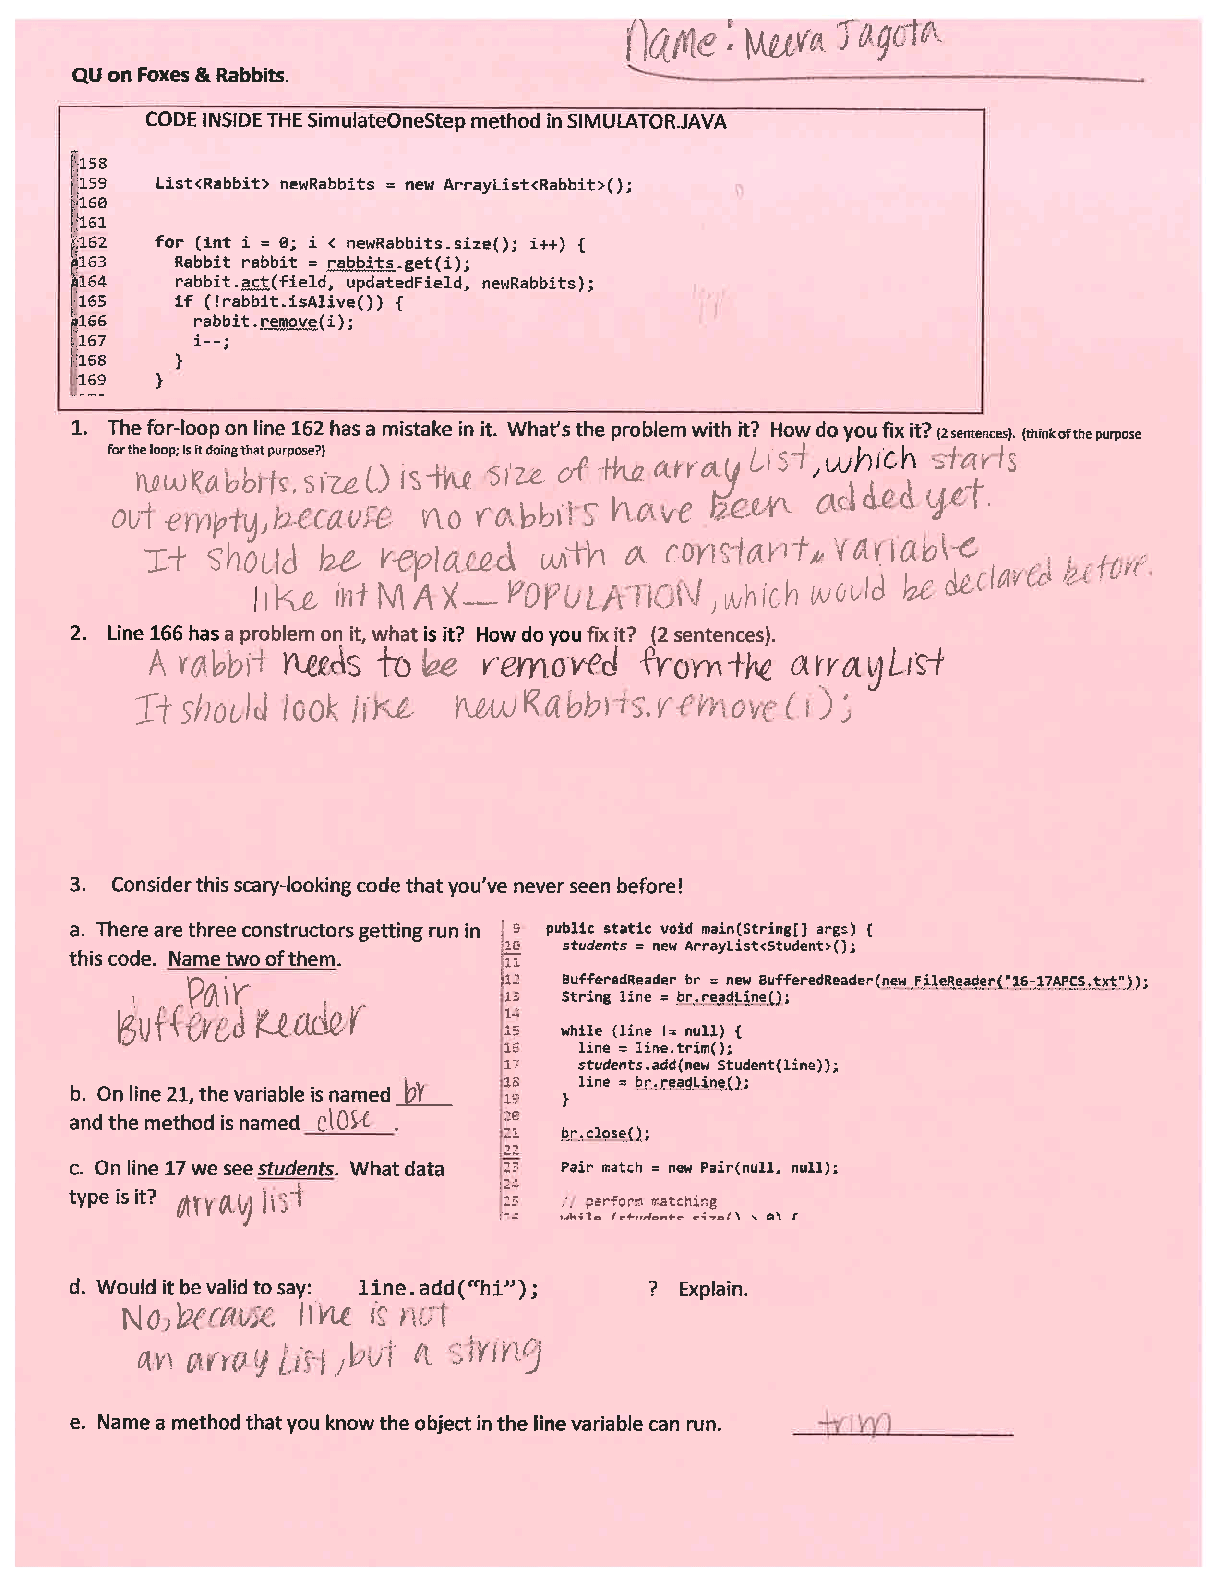 Name: Meera Jagota
QU on Foxes & Rabbits.
CODE INSIDE THE SimulateOneStep method in SIMULATOR.JAVA
158
159 List<Rabbit> newRabbits = new ArrayList<Rabbit>();
160
161
162 for (int i = 0; i < newRabbits.size(); i++) {
163 Rabbit rabbit = rabbits.get(i);
164 rabbit.act(field, updatedField, newRabbits);
165 if (!rabbit.isAlive()) {
166 rabbit.remove(i);
167 i--;
168 }
169 }
1. The for-loop on line 162 has a mistake in it. What's the problem with it? How do you fix it? (2 sentences). (think of the purpose
for the loop; is it doing that purpose?)
newRabbits.size() is the size of the arrayList, which starts
out empty, because no rabbits have been added yet.
It should be replaced with a constant variable
like int MAX_POPULATION, which would be declared before.
2. Line 166 has a problem on it, what is it? How do you fix it? (2 sentences).
A rabbit needs to be removed from the arrayList
It should look like newRabbits.remove(i);
3. Consider this scary-looking code that you've never seen before!
a. There are three constructors getting run in
this code. Name two of them.
Pair
Buffered Reader
b. On line 21, the variable is named br
and the method is named close.
c. On line 17 we see students. What data
type is it? array list
9 public static void main(String[] args) {
10 students = new ArrayList<Student>();
11
12 BufferedReader br = new BufferedReader(new FileReader("16-17APCS.txt"));
13 String line = br.readLine();
14
15 while (line != null) {
16 line = line.trim();
17 students.add(new Student(line));
18 line = br.readLine();
19 }
20
21 br.close();
22
23 Pair match = new Pair(null, null);
24
25 // perform matching
while (students.size() > 0) {
d. Would it be valid to say: line.add("hi"); ? Explain.
No, because line is not
an array List, but a string
e. Name a method that you know the object in the line variable can run. trim